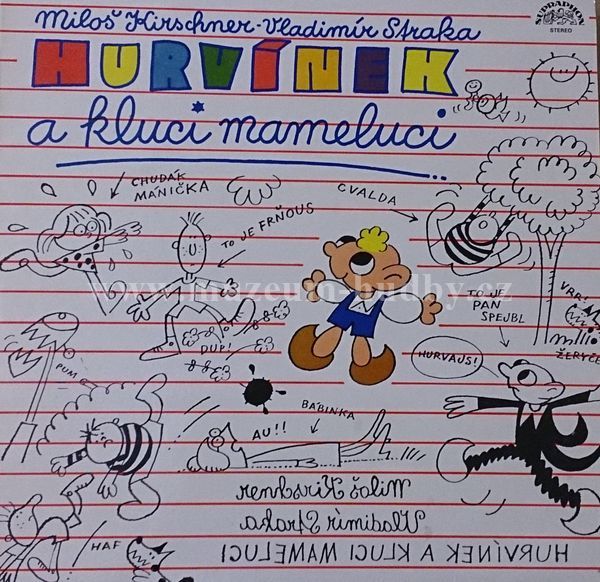 Miloš Kirschner-Vladimír Straka
SUPRAPHON
STEREO
HURVÍNEK
a kluci mameluci
CHUDÁK
MÁNIČKA
CVALDA
TO JE FRŇOUS
TO JE
PAN
SPEJBL
VRR!
ŽERYČEK
www.muzeum-hudby.cz
DUP!
PUM
HURVAJS!
BABINKA
AU!!
HAF
Miloš Kirschner
Vladimír Straka
HURVÍNEK A KLUCI MAMELUCI